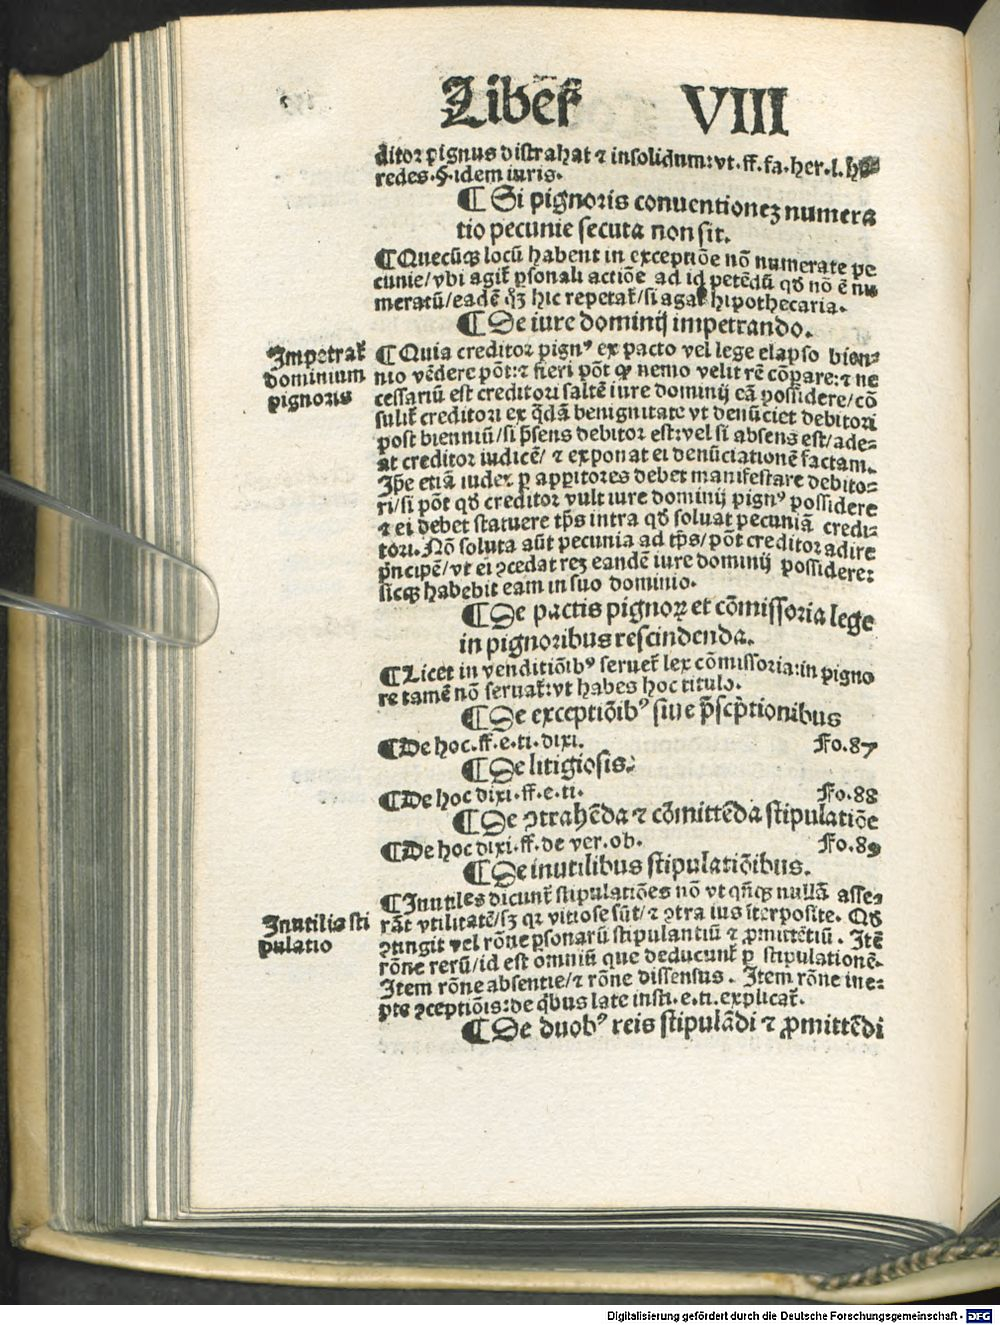 Liber VIII
ditor pignus distrahat ⁊ insolidum: vt .ff. fa. her. l. he
redes. §. idem iuris.
¶ Si pignoris conuentionez numera
tio pecunie secuta non sit.
¶ Quecũqꝫ locũ habent in exceptiõe nõ numerate pe
cunie/ vbi agit᷑ ꝑsonali actiõe ad id petẽdũ qđ nõ ẽ nu
meratũ/ eadẽ hic repetat᷑/ si agat᷑ hipothecaria.
¶ De iure dominij impetrando.
Impetrat᷑
dominium
pignoris
¶ Quia creditor pignꝰ ex pacto vel lege elapso bien-
nio vẽdere põt: ⁊ fieri põt ꝙ nemo velit rẽ cõparare: ⁊ ne
cessariũ est creditori saltẽ iure dominij eã possidere/ cõ
sulit᷑ creditori ex q̃dã benignitate vt denũciet debitori
post bienniũ/ si p̃sens debitor est: vel si absens est/ ade-
at creditor iudicẽ/ ⁊ exponat ei denũciationẽ factam.
Ip̃e etiã iudex ꝑ apꝑitores debet manifestare debito-
ri/ si põt qđ creditor vult iure dominij pignꝰ possidere
⁊ ei debet statuere tp̃s intra qđ soluat pecuniã credi-
tori. Nõ soluta aũt pecunia ad tp̃s/ põt creditor adire
p̃ncipẽ/ vt ei ↄcedat rez eandẽ iure dominij possidere:
sicqꝫ habebit eam in suo dominio.
¶ De pactis pignoꝝ et cõmissoria lege
in pignoribus rescindenda.
¶ Licet in venditiõibꝰ seruet᷑ lex cõmissoria: in pigno
re tamẽ nõ seruat᷑: vt habes hoc titulo.
¶ De exceptiõibꝰ siue p̃scp̃tionibus
¶ De hoc .ff. e. ti. dixi. Fo. 87
¶ De litigiosis.
¶ De hoc dixi .ff. e. ti. Fo. 88
¶ De ↄtrahẽda ⁊ cõmittẽda stipulatiõe
¶ De hoc dixi .ff. de ver. ob. Fo. 89
¶ De inutilibus stipulatiõibus.
Inutilis sti
pulatio
¶ Inutiles dicunt᷑ stipulatiões nõ vt qñqꝫ nullã affe-
rãt vtilitatẽ/ sꝫ qꝛ vitiose sũt/ ⁊ ↄtra ius ĩterposite. Qđ
ↄtingit vel rõne ꝑsonarũ stipulantiũ ⁊ ꝓmittẽtiũ. Itẽ
rõne rerũ/ id est omniũ que deducunt᷑ ꝑ stipulationẽ.
Item rõne absentie/ ⁊ rõne dissensus. Item rõne ine-
pte ↄceptiõis: de qbus late insti. e. ti. explicat᷑.
¶ De duobꝰ reis stipulãdi ⁊ ꝓmittẽdi
Digitalisierung gefördert durch die Deutsche Forschungsgemeinschaft - DFG